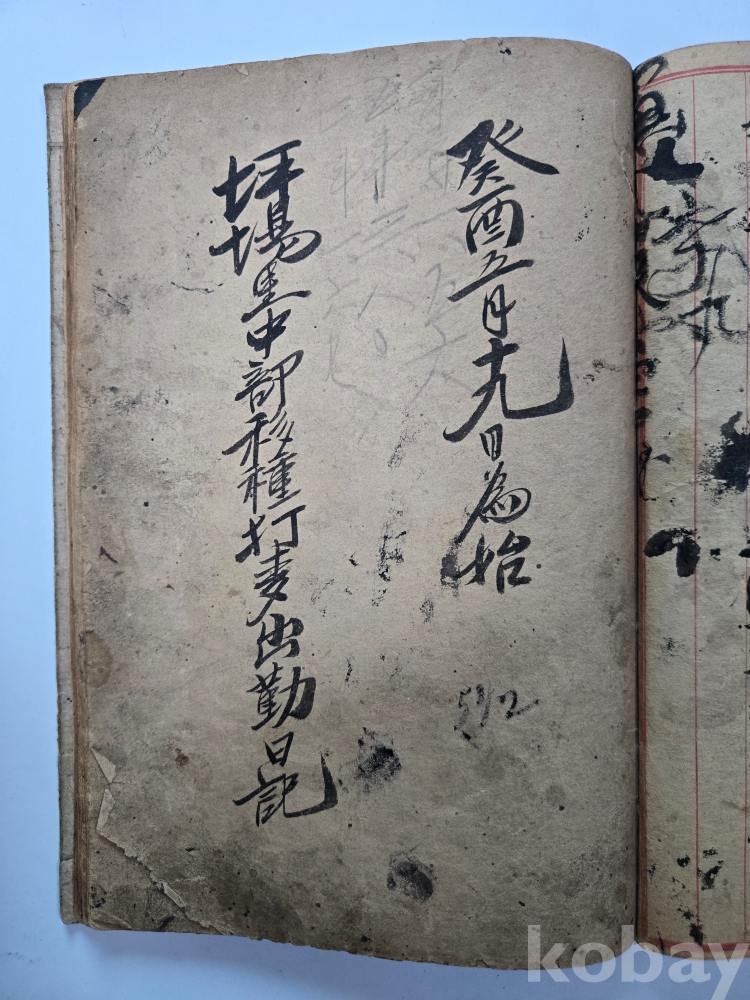 癸酉五月十九日為始
坪場里中部移種打麦出勤日記
kobay